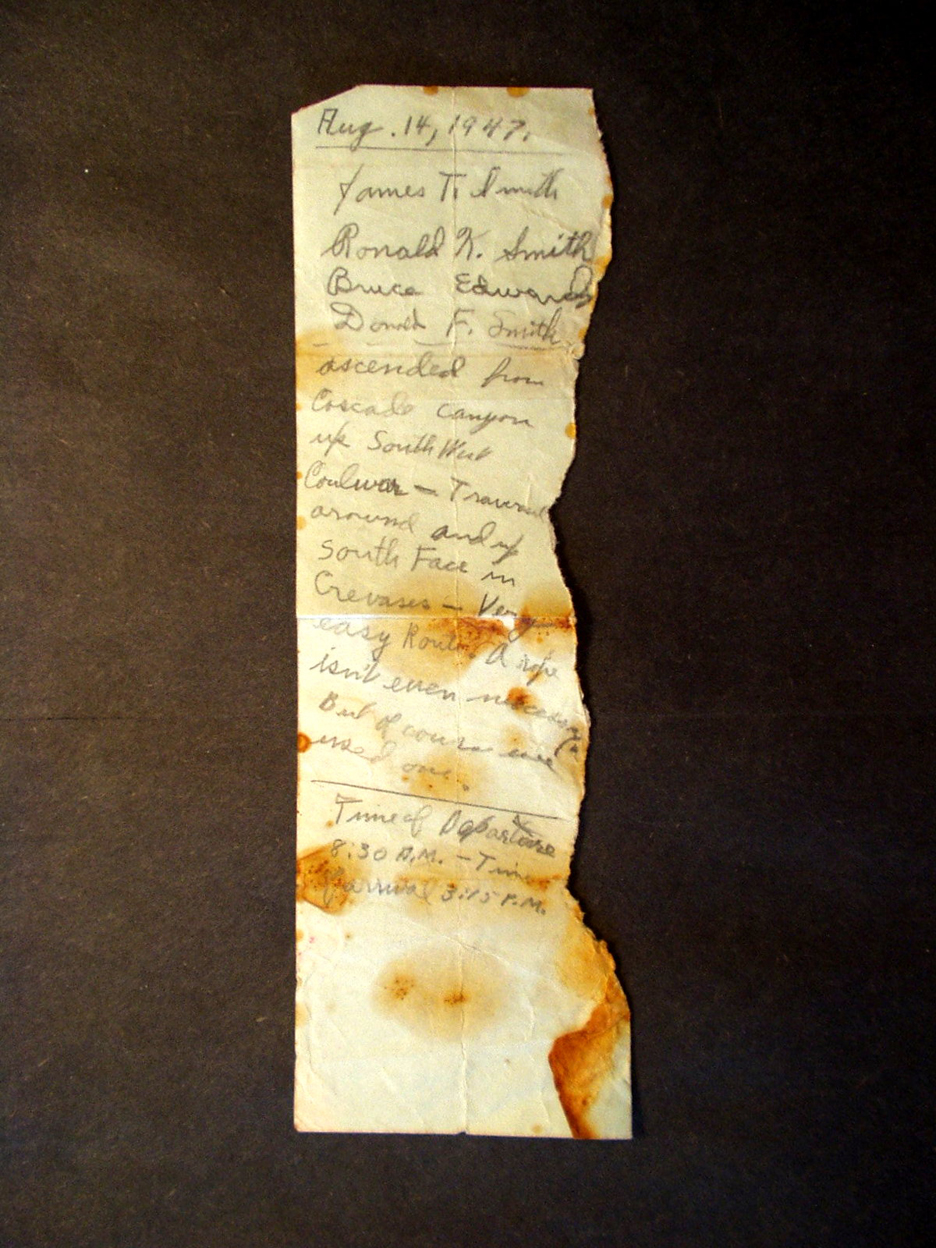 Aug. 14, 1947.
James T. Smith
Ronald K. Smith
Bruce Edwards
Donald F. Smith
ascended from
Cascade canyon
up South West
Couluoir — Traversed
around and up
South Face in
Crevases — Very
easy Route. A rope
isn't even necessary
But of course we
used one.
Time of Departure
8:30 A.M. — Time
arrival 3:15 P.M.